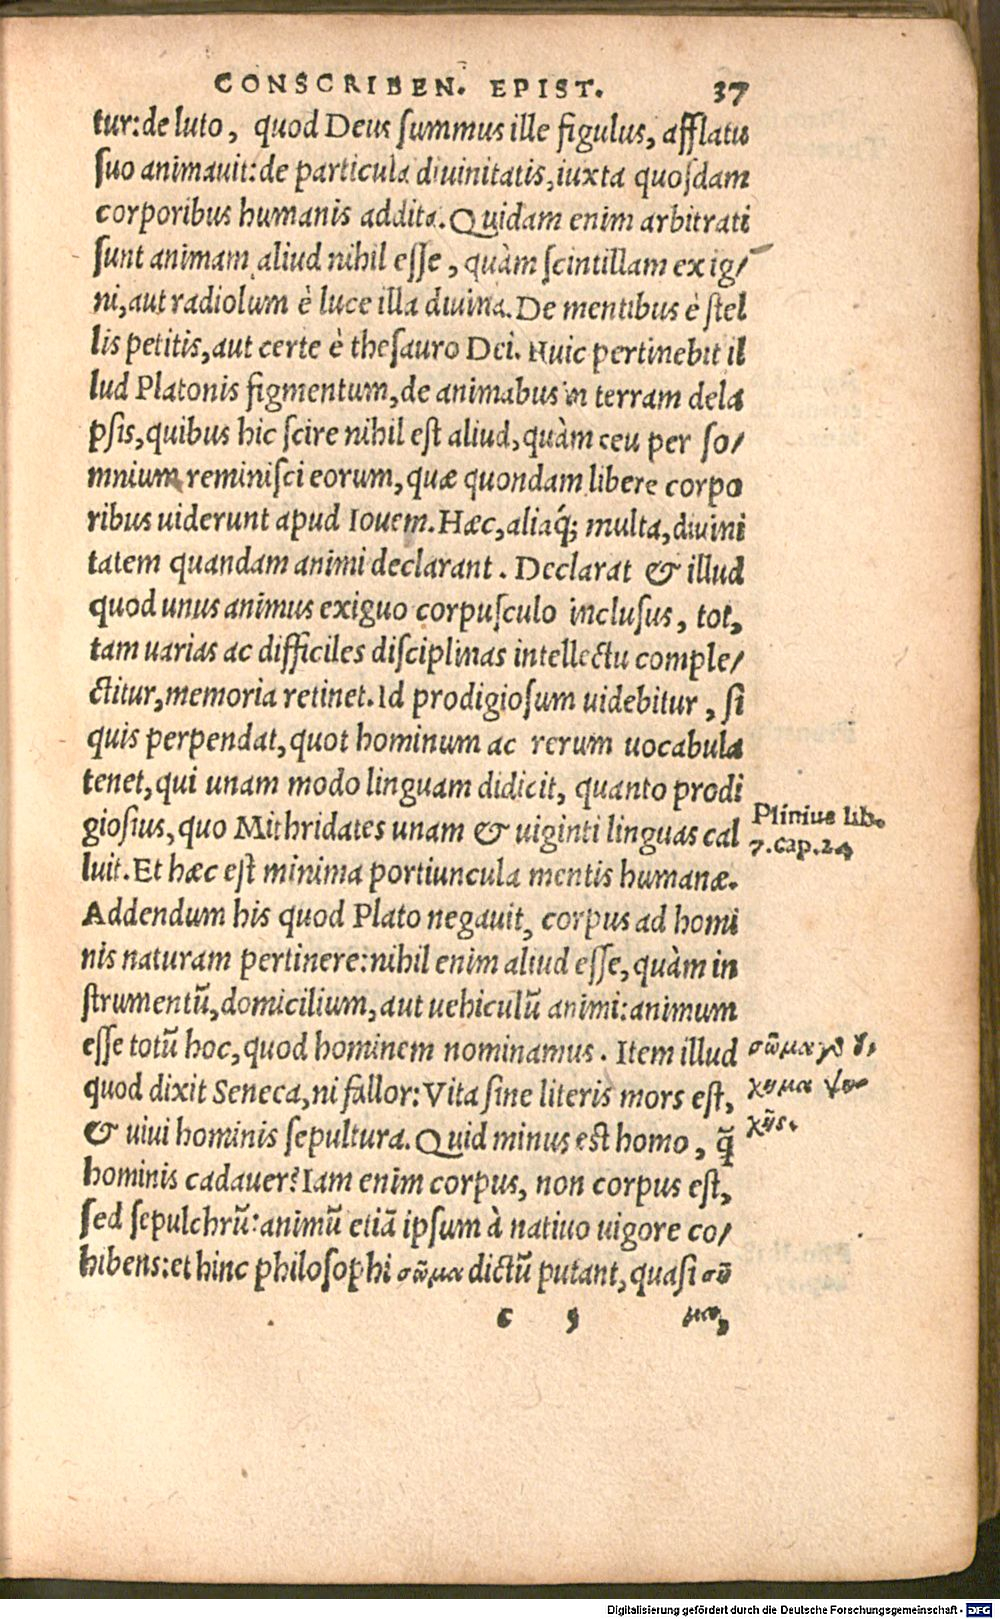 CONSCRIBEN. EPIST. 37
tur: de luto, quod Deus ſummus ille figulus, afflatu
ſuo animauit: de particula diuinitatis, iuxta quoſdam
corporibus humanis addita. Quidam enim arbitrati
ſunt animam aliud nihil eſſe, quàm ſcintillam ex ig/
ni, aut radiolum è luce illa diuina. De mentibus è ſtel
lis petitis, aut certe è theſauro Dei. Huic pertinebit il
lud Platonis figmentum, de animabus in terram dela
pſis, quibus hic ſcire nihil eſt aliud, quàm ceu per ſo/
mnium reminiſci eorum, quæ quondam libere corpo
ribus uiderunt apud Iouem. Hæc, aliaq́; multa, diuini
tatem quandam animi declarant. Declarat & illud
quod unus animus exiguo corpuſculo incluſus, tot,
tam uarias ac difficiles diſciplinas intellectu comple/
ctitur, memoria retinet. Id prodigioſum uidebitur, ſi
quis perpendat, quot hominum ac rerum uocabula
tenet, qui unam modo linguam didicit, quanto prodi
gioſius, quo Mithridates unam & uiginti linguas cal
Plinius lib.
7. cap. 24
luit. Et hæc eſt minima portiuncula mentis humanæ.
Addendum his quod Plato negauit, corpus ad homi
nis naturam pertinere: nihil enim aliud eſſe, quàm in
ſtrumentū, domicilium, aut uehiculū animi: animum
eſſe totū hoc, quod hominem nominamus. Item illud
quod dixit Seneca, ni fallor: Vita ſine literis mors eſt,
& uiui hominis ſepultura. Quid minus eſt homo, q̄
hominis cadauer? Iam enim corpus, non corpus eſt,
ſed ſepulchrū: animū etiā ipſum à natiuo uigore co/
hibens: et hinc philoſophi σῶμα dictū putant, quaſi σῆ
c 5 μα,